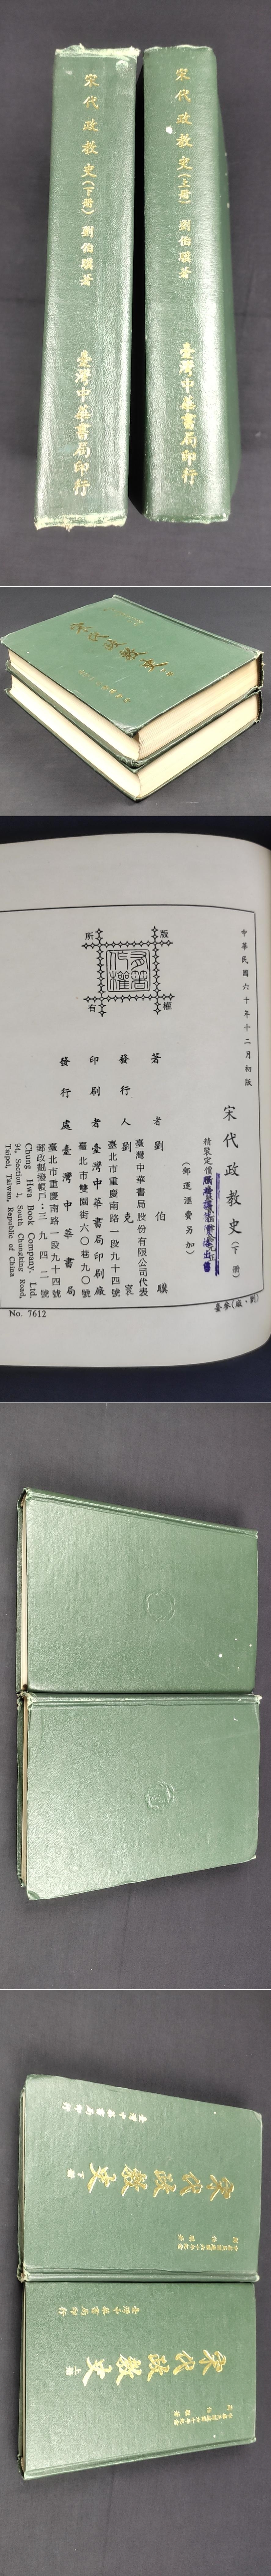 宋代政教史(下冊) 劉伯驥著 臺灣中華書局印行
宋代政教史(上冊) 劉伯驥著 臺灣中華書局印行
宋代政教史
中華民國六十年十二月初版
宋代政教史(下冊)
精裝定價
(郵運滙費另加)
著者 劉伯驥
發行人 劉克寰
臺灣中華書局股份有限公司代表
臺北市重慶南路一段九十四號
印刷者 臺灣中華書局印刷廠
臺北市雙園街六〇巷九〇號
發行處 臺灣中華書局
臺北市重慶南路一段九十四號
郵政劃撥帳戶:三九四二號
Chung Hwa Book Company, Ltd.
94, Section 1, South Chungking Road,
Taipei, Taiwan, Republic of China
版權所有
No. 7612
臺參(廠·劉)
宋代政教史 下冊
臺灣中華書局印行
宋代政教史 上冊
臺灣中華書局印行